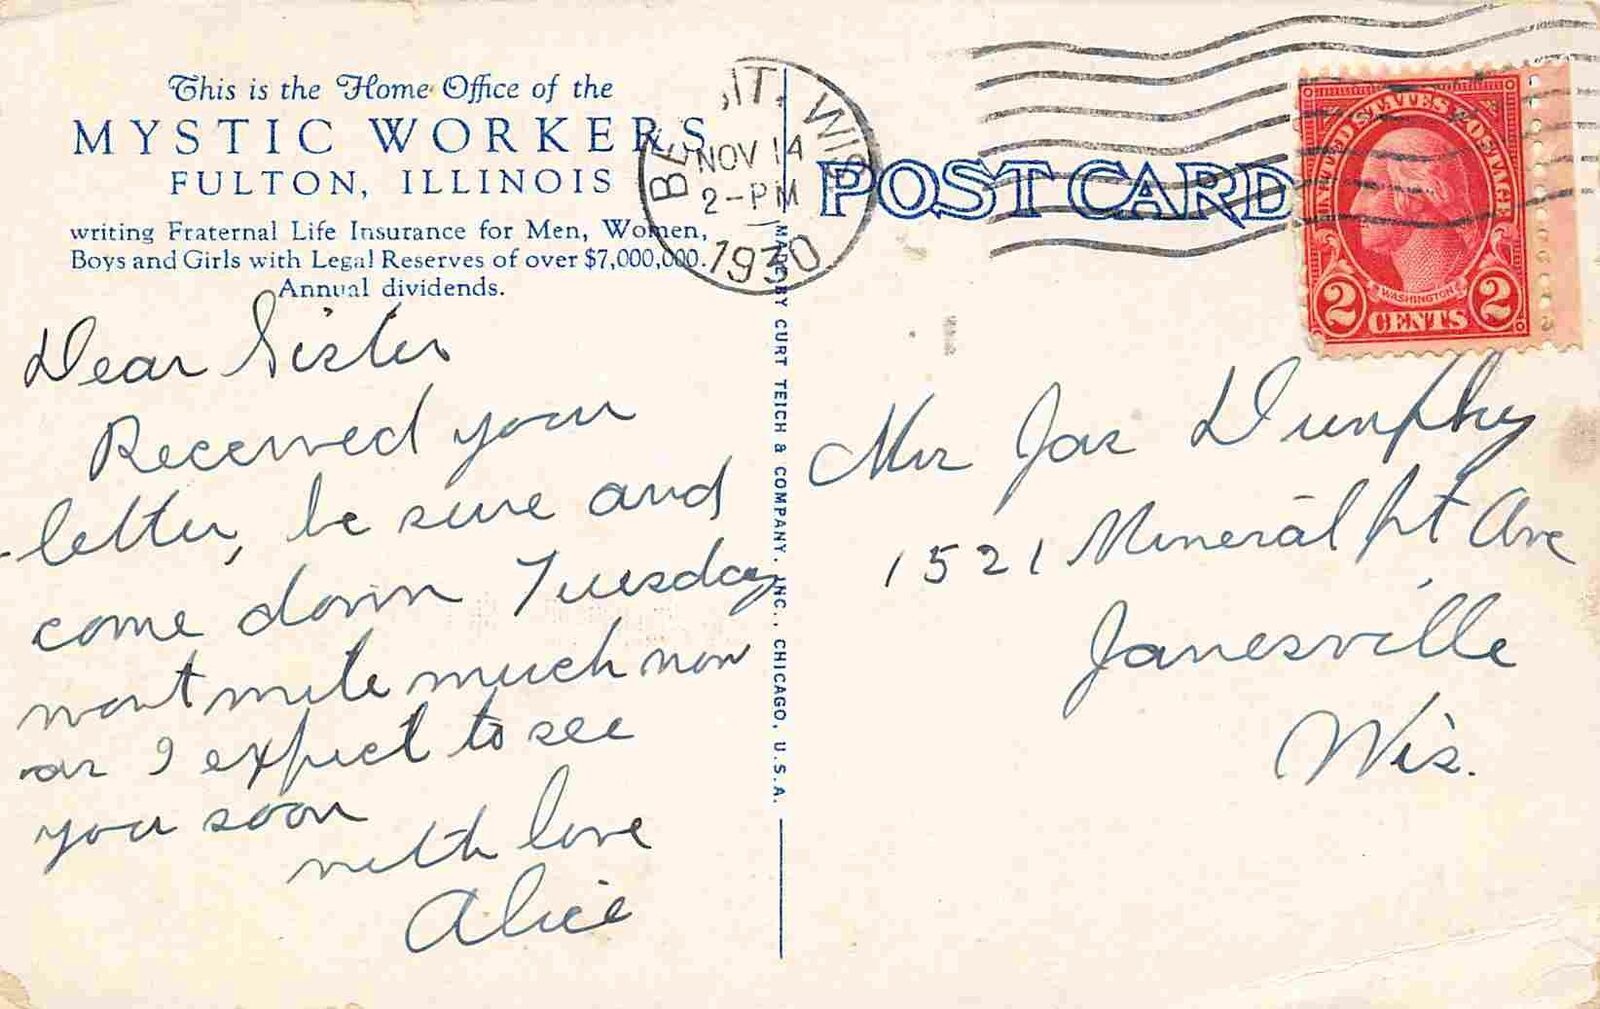 This is the Home Office of the
MYSTIC WORKERS
FULTON, ILLINOIS
writing Fraternal Life Insurance for Men, Women,
Boys and Girls with Legal Reserves of over $7,000,000.
Annual dividends.
Dear Sister
Received your
letter, be sure and
come down Tuesday
wont write much now
as I expect to see
you soon
with love
Alice
MADE BY CURT TEICH & COMPANY, INC., CHICAGO, U.S.A.
BELOIT, WIS
NOV 14
2-PM
1930
POST CARD
UNITED STATES POSTAGE
WASHINGTON
2 CENTS 2
Mrs Jas Dunphy
1521 Mineral Pt Ave
Janesville
Wis.